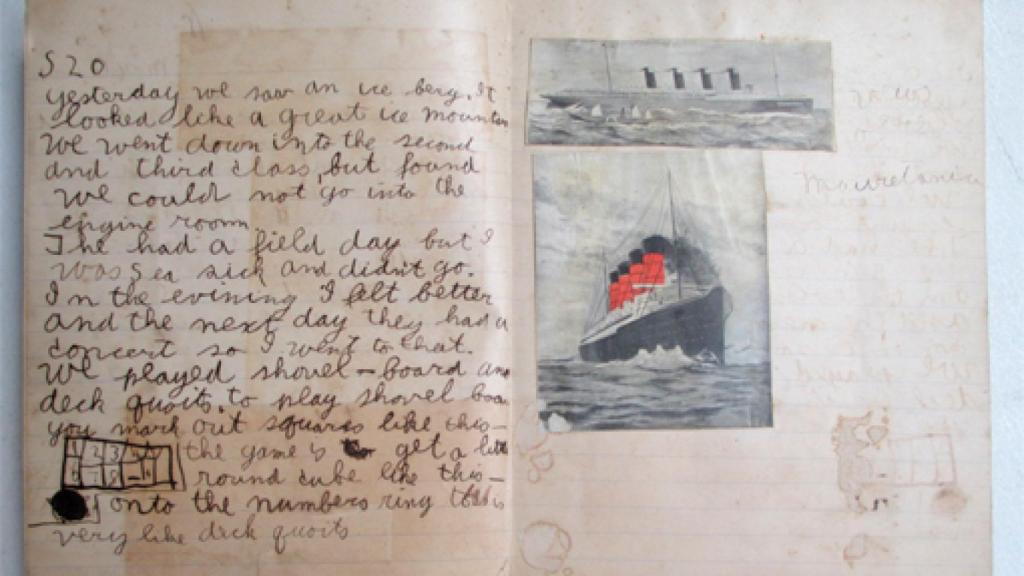 S 20
yesterday we saw an ice berg. It
looked like a great ice mountain
We went down into the second
and third class, but found
we could not go into the
engine room
The had a field day but I
was sea sick and didn't go.
In the evining I felt better
and the next day they had a
concert so I went to that.
We played shovel-board and
deck quoits. to play shovel boar
you mark out squares like this-
1 2 3
the game is get a litt
round cube like this-
onto the numbers ring
very like deck quoits
Mauretania